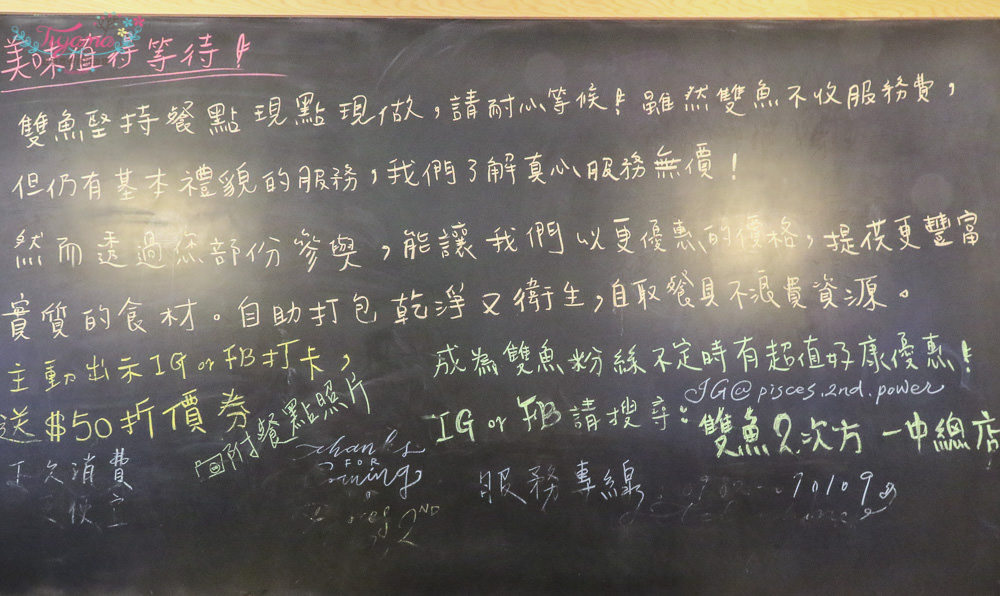 Tiyama
美味值得等待!
雙魚堅持餐點現點現做,請耐心等候!雖然雙魚不收服務費,
但仍有基本禮貌的服務,我們了解真心服務無價!
然而透過您部份參與,能讓我們以更優惠的價格,提供更豐富
實質的食材。自助打包乾淨又衛生,自取餐具不浪費資源。
主動出示IG or FB打卡,
送$50折價券
附餐點照片
成為雙魚粉絲不定時有超值好康優惠!
IG@pisces.2nd.power
IG or FB請搜尋:雙魚2次方 一中總店
下次消費
thanks
FOR
2ND
服務專線